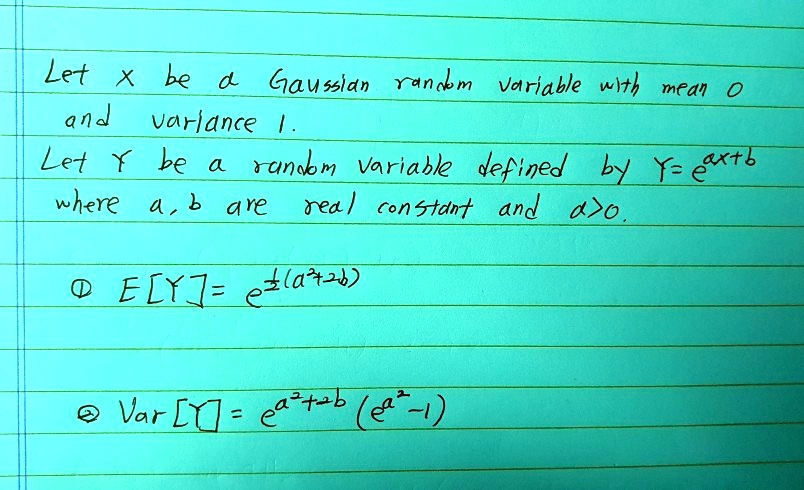 Let X be a Gaussian random variable with mean 0
and variance 1.
Let Y be a random variable defined by Y= e^{ax+b}
where a, b are real constant and a>0.
① E[Y]= e^{½(a²+2b)}
② Var[Y] = e^{a²+2b} (e^{a²}-1)